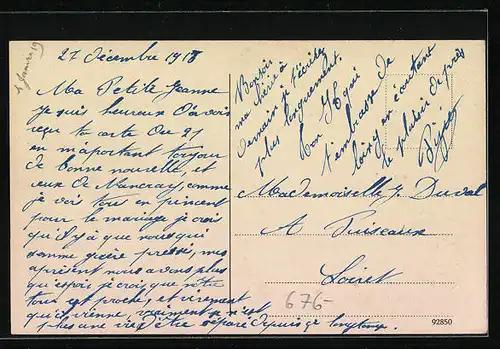 27 décembre 1918
Ma Petite Jeanne
Je suis heureux d'avoir
reçu ta carte du 21
en m'aportant toujour
de bonne nouvelle, et
ceux de Mancray, comme
je vois tous en pincent
pour le mariage je crois
qu'il y a que nous qui
somme guère pressé, mes
aprésent nous avons plus
qu'espoir je crois que nôtre
tour est proche, et vivement
qu'il vienne, vraiment se n'est
plus une vie d'être séparé depuis si longtemps.
Bonsoir
ma chérie à
demain t'écrire
plus longuement.
Ton qui
t'embrasse de
loin en comptant
le plaisir de près
Mademoiselle J. Duval
A Puiseaux
Loiret
676-
92850